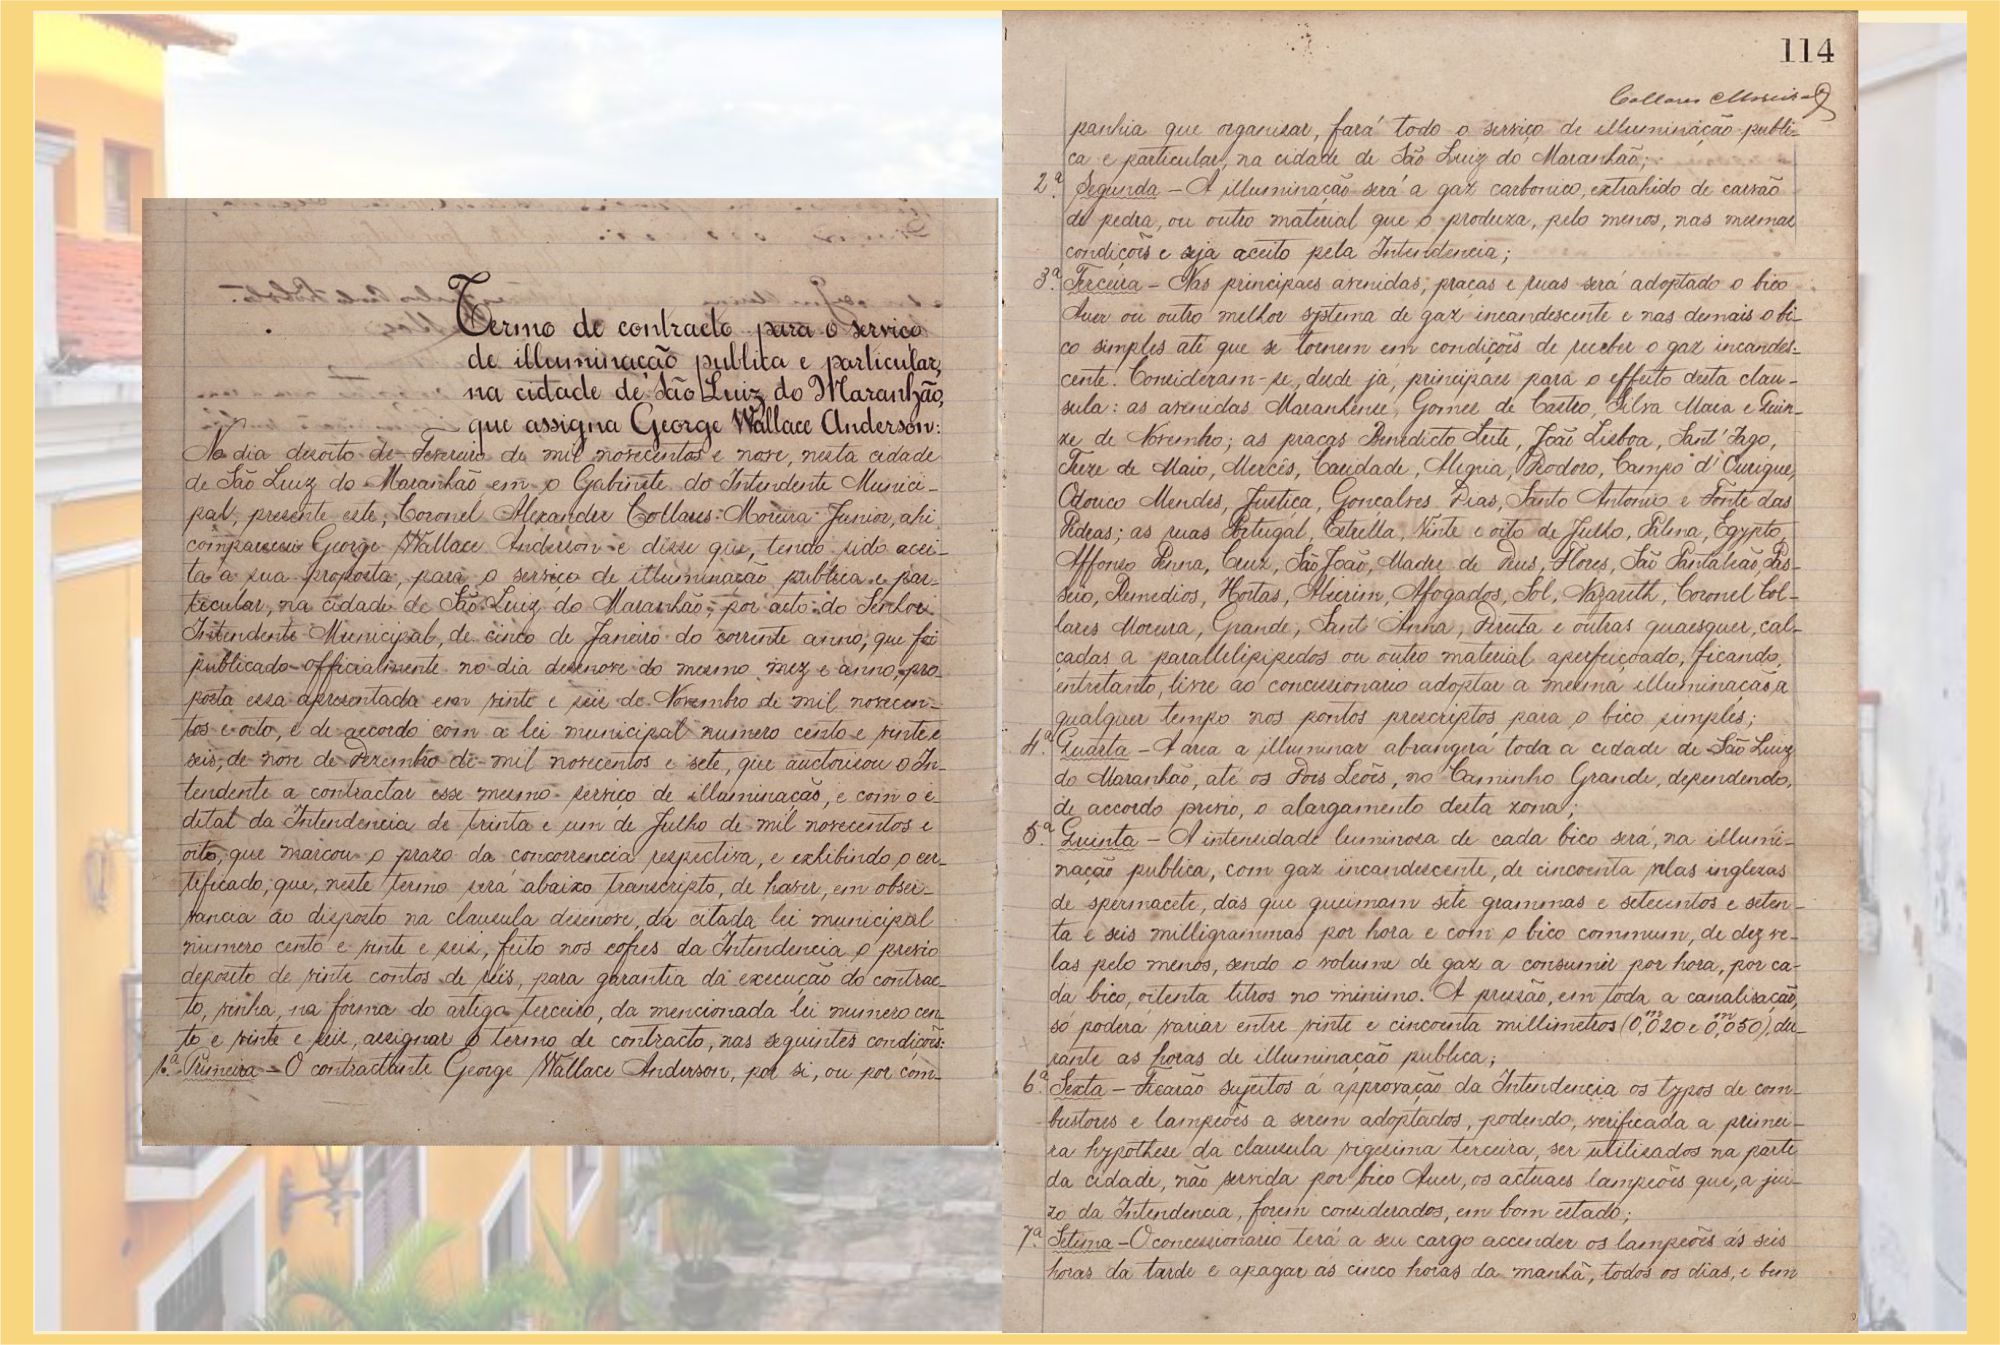 Termo de contracto para o serviço
de illuminação publica e particular,
na cidade de São Luiz do Maranhão,
que assigna George Wallace Anderson:
No dia desoito de Fevereiro de mil novecentos e nove, nesta cidade
de São Luiz do Maranhão em o Gabinete do Intendente Munici-
pal, presente este, Coronel Alexandre Collares Moreira Junior, ahi
compareceu George Wallace Anderson e disse que, tendo sido acei-
ta a sua proposta, para o serviço de illuminação publica e par-
ticular, na cidade de São Luiz do Maranhão, por acto do Senhor
Intendente Municipal, de cinco de Janeiro do corrente anno, que foi
publicado officialmente no dia desenove do mesmo mez e anno, pro-
posta essa apresentada em vinte e seis de Novembro de mil novecen-
tos e oito, e de accordo com a lei municipal numero cento e vinte e
seis, de nove de Dezembro de mil novecentos e sete, que auctorisou o In-
tendente a contractar esse mesmo serviço de illuminação, e com o e-
dital da Intendencia de trinta e um de Julho de mil novecentos e
oito, que marcou o prazo da concorrencia respectiva, e exhibindo o cer-
tificado, que, neste termo será abaixo transcripto, de haver, em obser-
vancia ao disposto na clausula desenove, da citada lei municipal
numero cento e vinte e seis, feito nos cofres da Intendencia o previo
deposito de vinte contos de réis, para garantia da execução do contrac-
to, vinha, na forma do artigo terceiro, da mencionada lei numero cen-
to e vinte e seis, assignar o termo de contracto, nas seguintes condições:
1.ª Primeira – O contractante George Wallace Anderson, por si, ou por com-
114
Collares Moreira
panhia que organisar, fará todo o serviço de illuminação publi-
ca e particular, na cidade de São Luiz do Maranhão;
2.ª Segunda – A illuminação será a gaz carbonico, extrahido de carvão
de pedra, ou outro material que o produza, pelo menos, nas mesmas
condições e seja aceito pela Intendencia;
3.ª Terceira – Nas principaes avenidas, praças e ruas será adoptado o bico
Auer ou outro melhor systema de gaz incandescente e nas demais o bi-
co simples até que se tornem em condições de receber o gaz incandes-
cente. Consideram-se, desde já, principaes para o effeito desta clau-
sula: as avenidas Maranhense, Gomes de Castro, Silva Maia e Quin-
ze de Novembro; as praças Benedicto Leite, João Lisboa, Sant'Iago,
Treze de Maio, Mercês, Caridade, Alegria, Deodoro, Campo d'Ourique,
Odorico Mendes, Justiça, Gonçalves Dias, Santo Antonio e Fonte das
Pedras; as ruas Portugal, Estrella, Vinte e oito de Julho, Palma, Egypto,
Affonso Penna, Cruz, São João, Madre de Deus, Flores, São Pantaleão, Pas-
seio, Remedios, Hortas, Alecrim, Afogados, Sol, Nazareth, Coronel Col-
lares Moreira, Grande, Sant'Anna, Direita e outras quaesquer, cal-
çadas a parallelipipedos ou outro material aperfeiçoado, ficando,
entretanto, livre ao concessionario adoptar a mesma illuminação, a
qualquer tempo nos pontos prescriptos para o bico simples;
4.ª Quarta – A area a illuminar abrangerá toda a cidade de São Luiz
do Maranhão, até os Dois Leões, no Caminho Grande, dependendo,
de accordo previo, o alargamento desta zona;
5.ª Quinta – A intensidade luminosa de cada bico será, na illumi-
nação publica, com gaz incandescente, de cincoenta velas inglezas
de spermacete, das que queimam sete grammas e setecentos e seten-
ta e seis milligrammas por hora e com o bico commum, de dez ve-
las pelo menos, sendo o volume de gaz a consumir por hora, por ca-
da bico, oitenta litros no minimo. A pressão, em toda a canalisação,
só poderá variar entre vinte e cincoenta millimetros (0,ᵐ020 e 0,ᵐ050), du-
rante as horas de illuminação publica;
6.ª Sexta – Ficarão sujeitos á approvação da Intendencia os typos de com-
bustores e lampeões a serem adoptados, podendo, verificada a primei-
ra hypothese da clausula vigesima terceira, ser utilisados na parte
da cidade, não servida por bico Auer, os actuaes lampeões que, a jui-
zo da Intendencia, forem considerados, em bom estado;
7.ª Setima – O concessionario terá a seu cargo accender os lampeões ás seis
horas da tarde e apagar as cinco horas da manhã, todos os dias, e bem